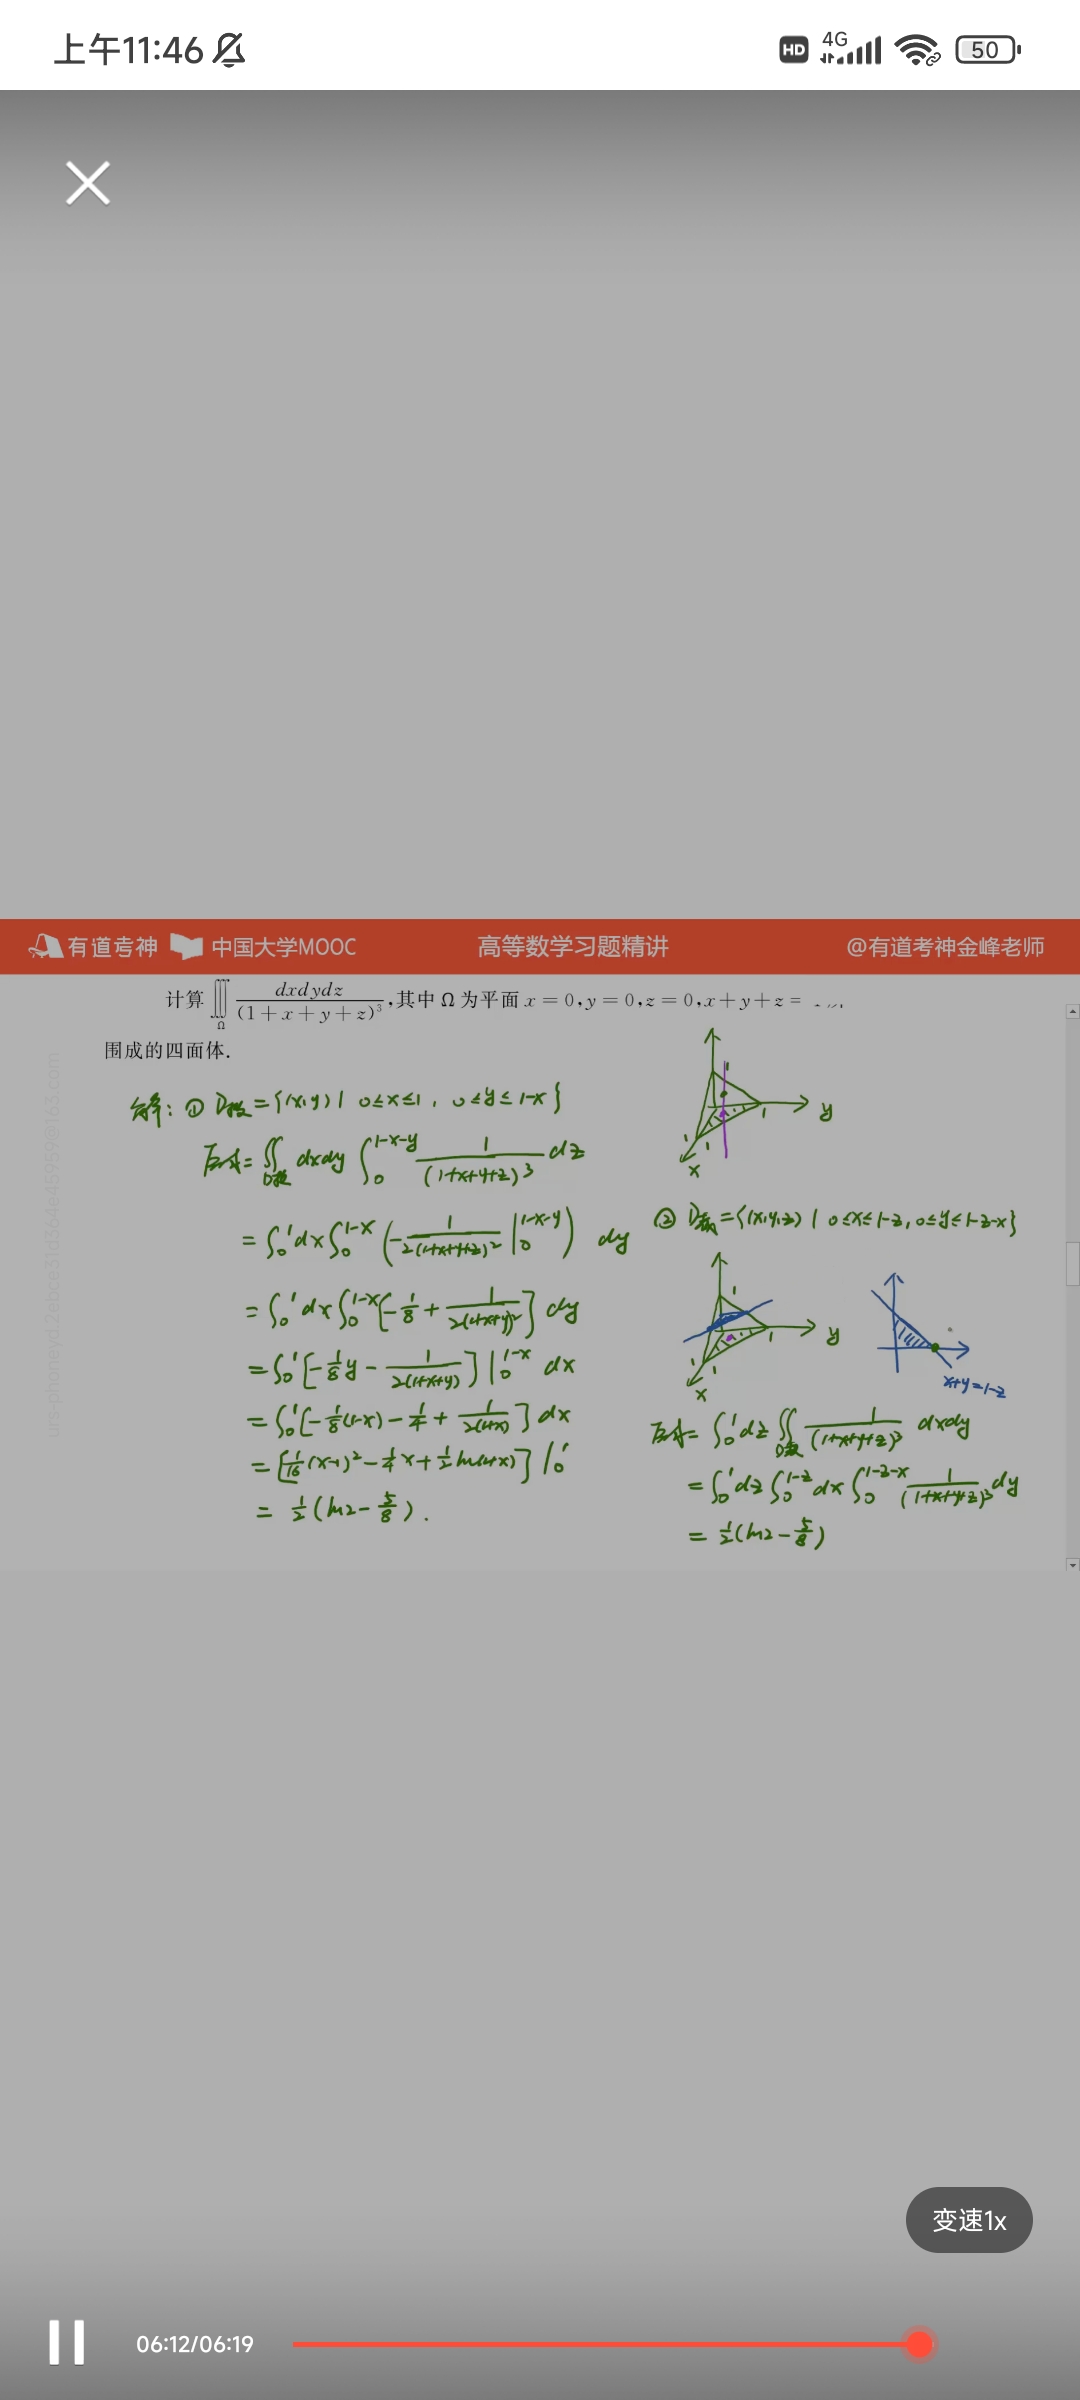 上午11:46
HD 4G 50
有道考神 中国大学MOOC 高等数学习题精讲 @有道考神金峰老师
计算∭_Ω dxdydz/(1+x+y+z)³,其中 Ω 为平面 x=0,y=0,z=0,x+y+z=
围成的四面体.
解: ① D投={(x,y) | 0≤x≤1, 0≤y≤1-x}
原式=∬_D投 dxdy ∫₀^(1-x-y) 1/(1+x+y+z)³ dz
=∫₀¹dx∫₀^(1-x) (-1/2(1+x+y+z)² |₀^(1-x-y)) dy
=∫₀¹dx∫₀^(1-x) [-1/8 + 1/2(1+x+y)²] dy
=∫₀¹[-1/8 y - 1/2(1+x+y)] |₀^(1-x) dx
=∫₀¹[-1/8(1-x) - 1/4 + 1/2(1+x)] dx
=[1/16(x-1)² - 1/4 x + 1/2 ln(1+x)] |₀¹
= 1/2(ln2 - 5/8).
1
y
1
1
1
x
② D截={(x,y,z) | 0≤x≤1-z, 0≤y≤1-z-x}
1
y
1
1
1
x
x+y=1-z
原式=∫₀¹dz∬_D截 1/(1+x+y+z)³ dxdy
=∫₀¹dz∫₀^(1-z)dx∫₀^(1-z-x) 1/(1+x+y+z)³ dy
= 1/2(ln2 - 5/8)
变速1x
06:12/06:19